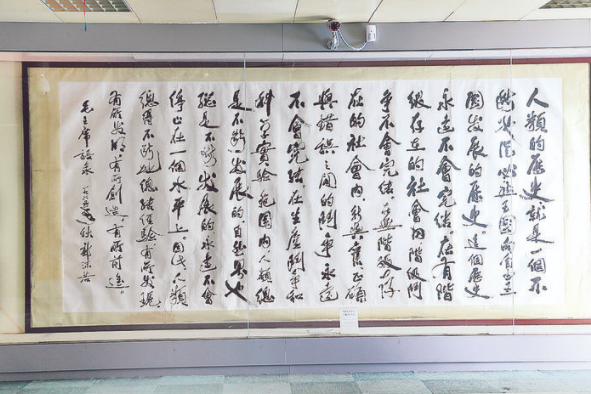 人類的歷史就是一個不
斷地從必然王國向自由王
國發展的歷史這個歷史
永遠不會完結在有階
級存在的社會內階級鬥
爭不會完結在無階級存
在的社會內新與舊正確
與錯誤之間的鬥爭永遠
不會完結在生產鬥爭和
科學實驗範圍內人類總
是不斷發展的自然界也
總是不斷發展的永遠不會
停止在一個水平上因此人類
總得不斷地總結經驗有所發現
有所發明有所創造有所前進。
毛主席語錄